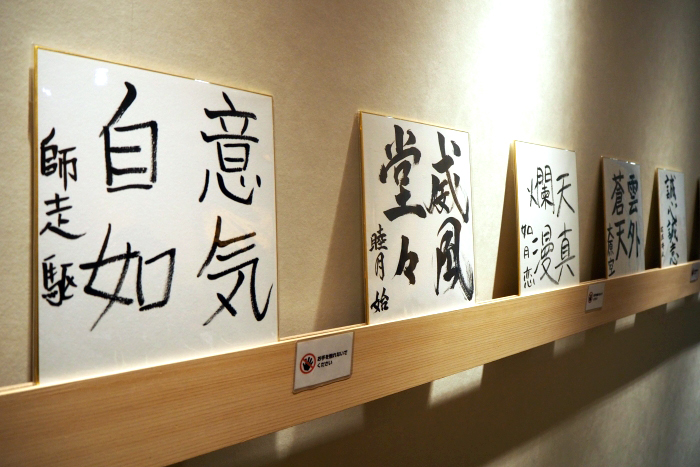 意気
自如
師走 駆
威風
堂々
睦月 始
天真
爛漫
如月 恋
雲外
蒼天
大原 空
お手を触れないで
ください